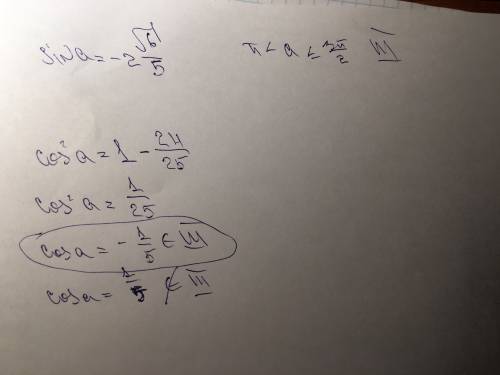 sin a = -2 √6/5    π < a ≤ 3π/2    III
cos² a = 1 - 24/25
cos² a = 1/25
cos a = - 1/5 ∈ III
cos a = 1/5 ∉ III